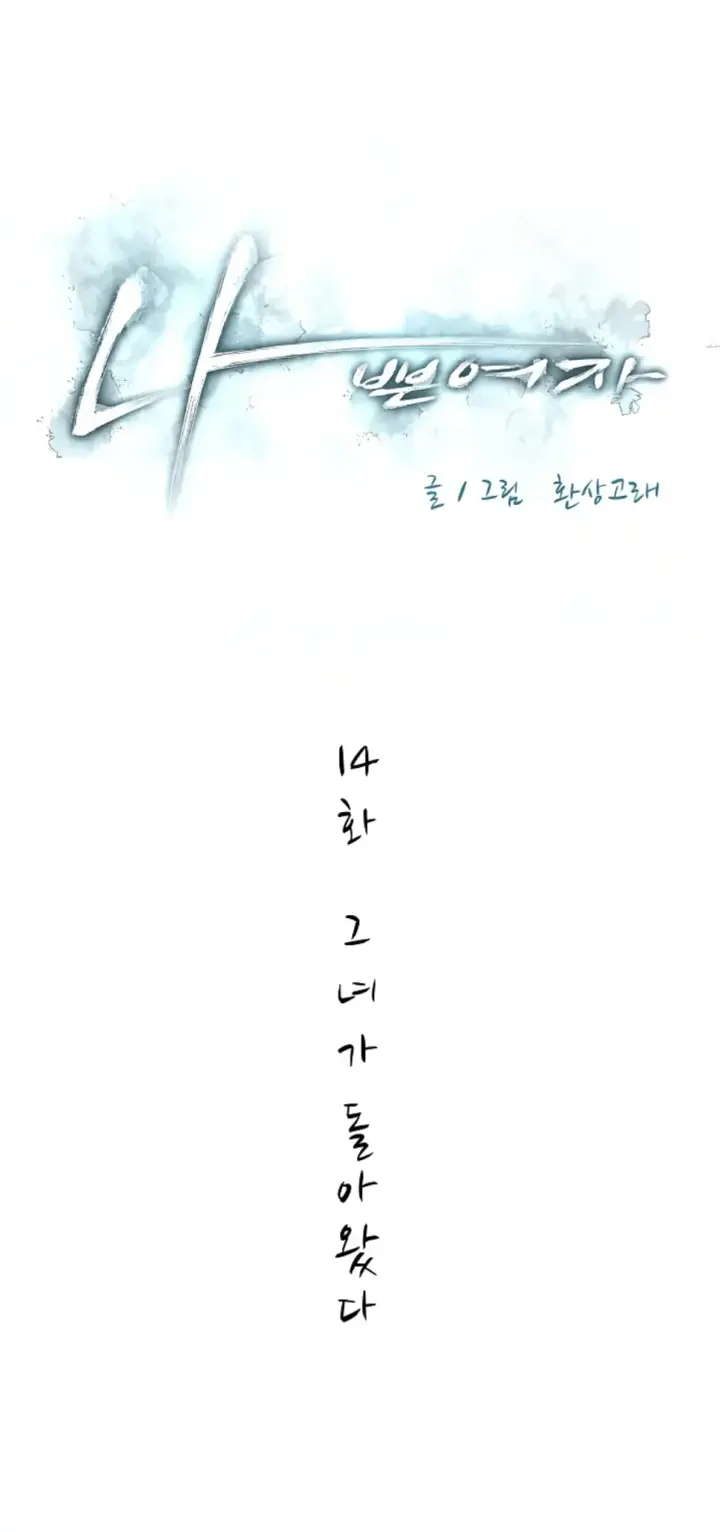 나쁜여자
글 / 그림 환상고래
14화 그녀가돌아왔다